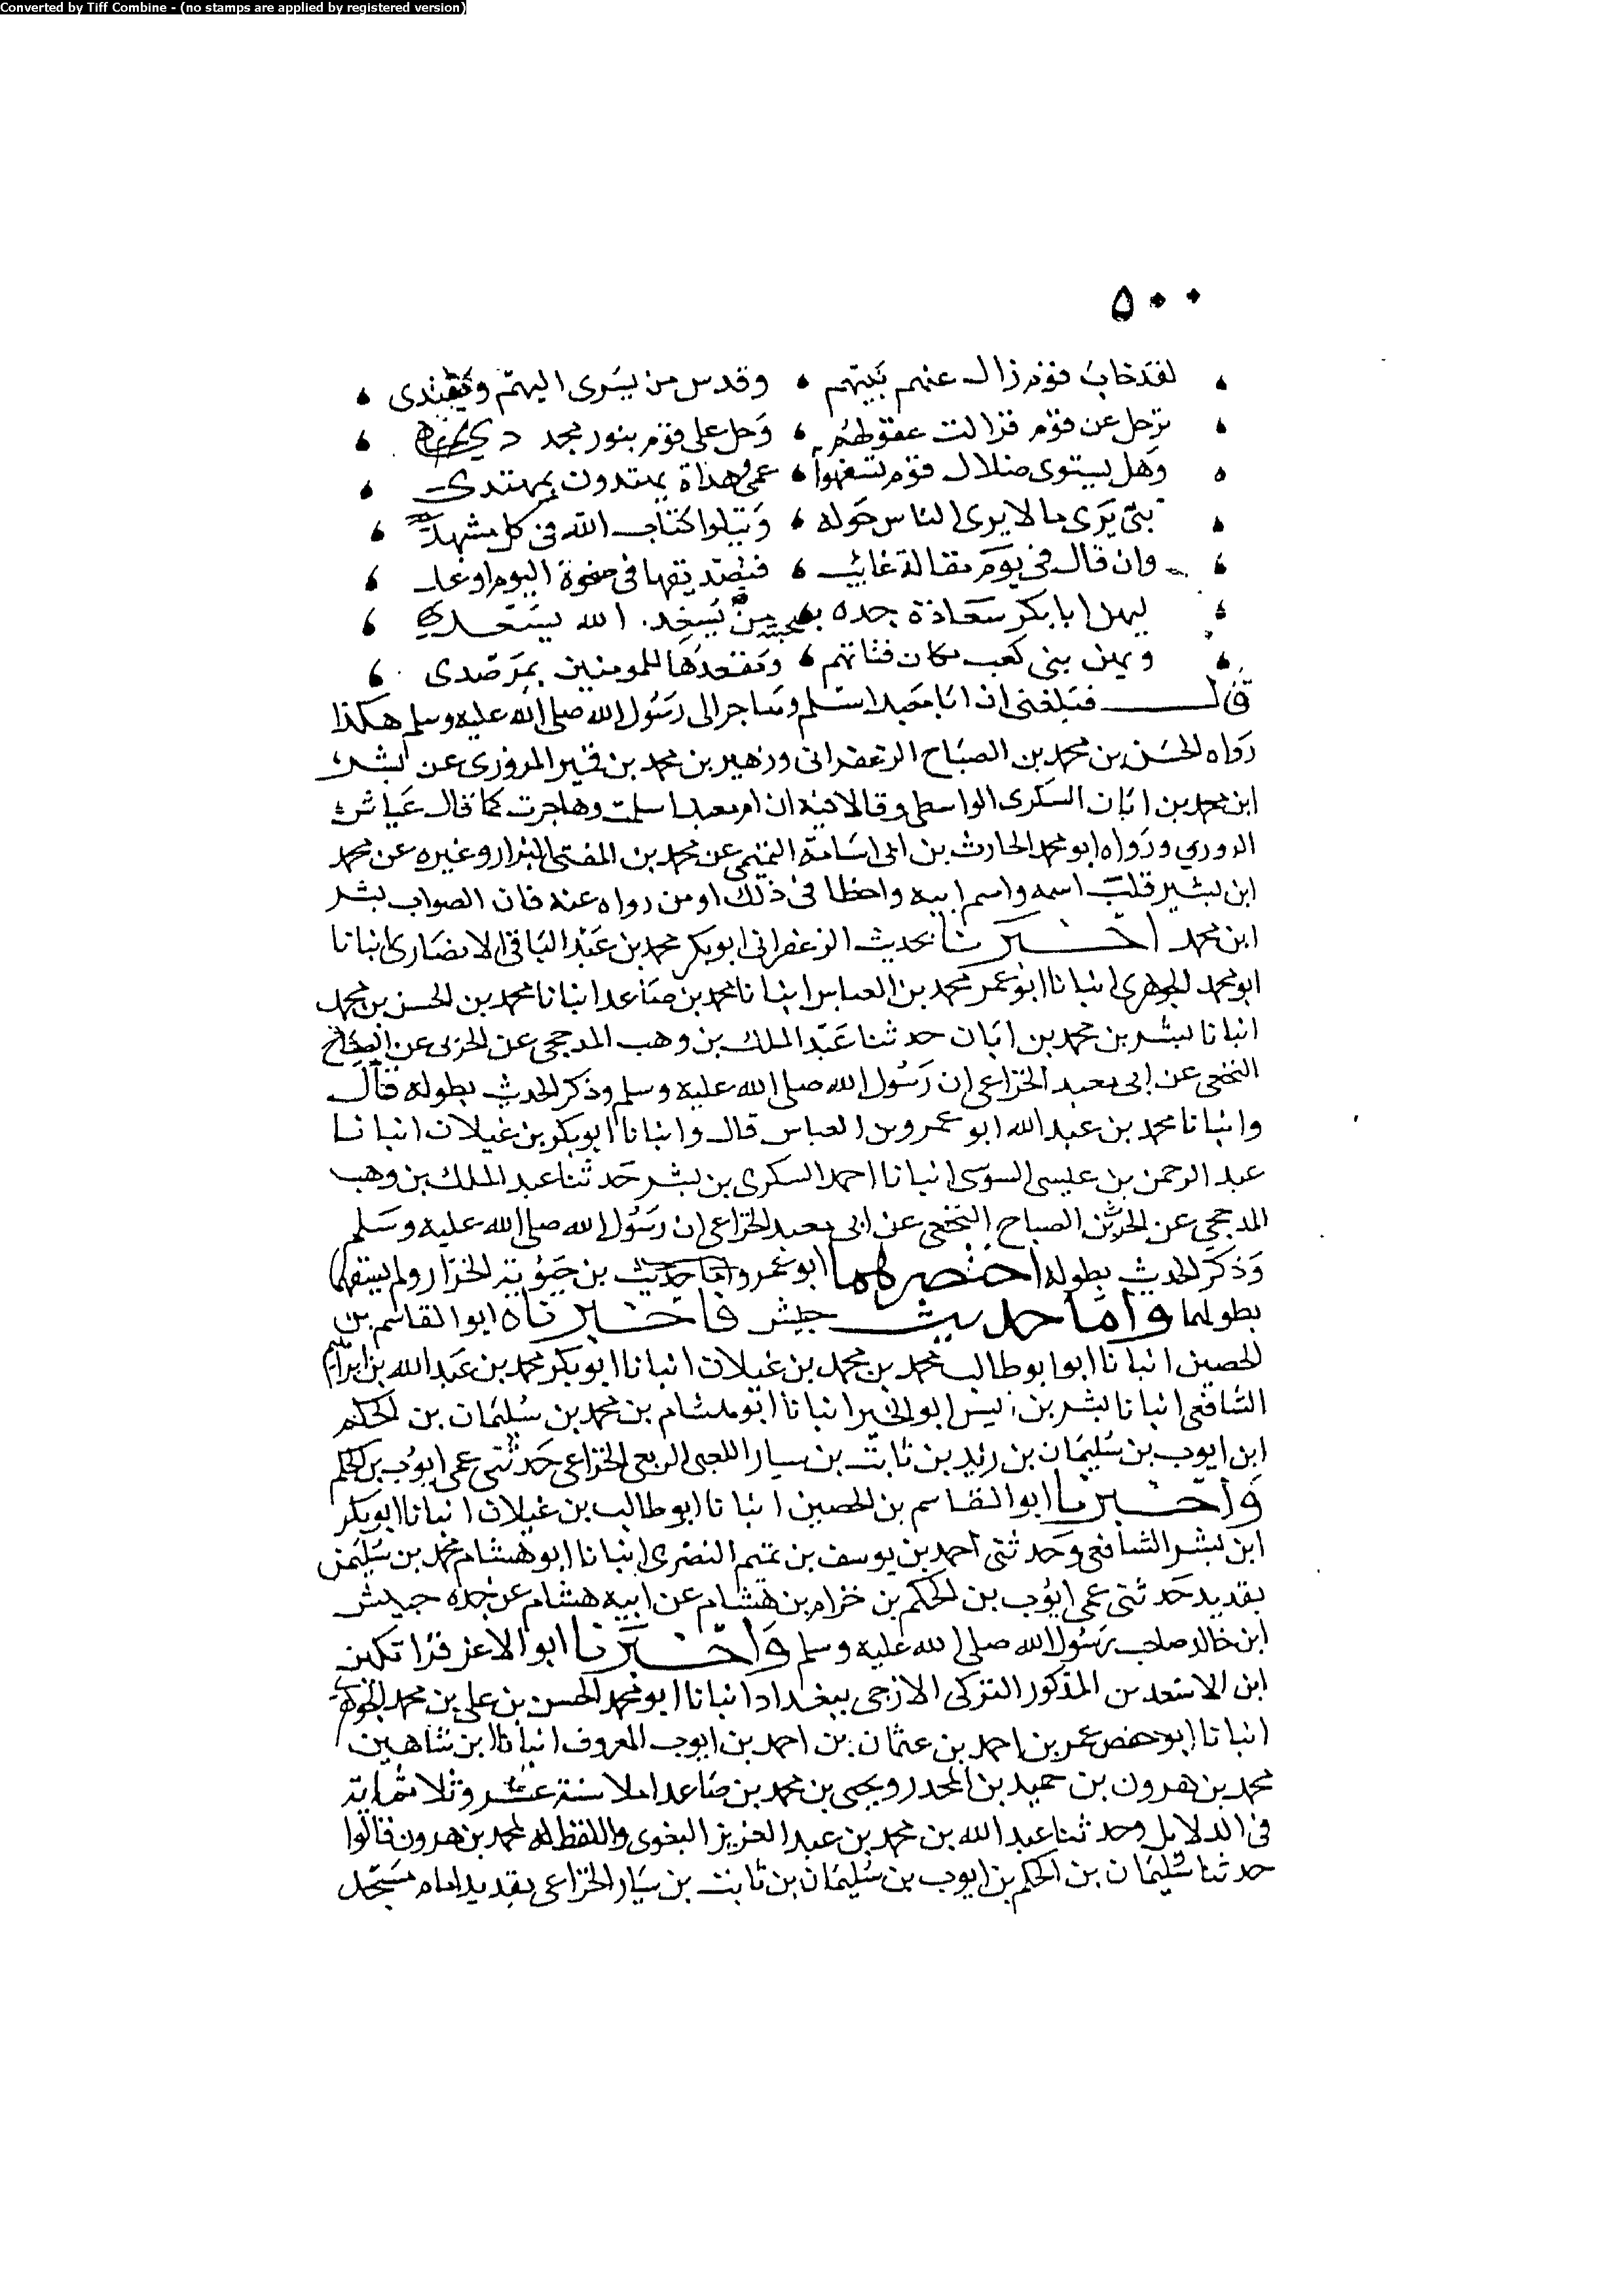 Converted by Tiff Combine - (no stamps are applied by registered version)
٥٠٠
لقد خاب قوم زال عنهم نبيهم وقدس من يسرى اليهم ويغتدى
ترحل عن قوم فزالت عقولهم وحل على قوم بنور مجدد
وهل يستوى ضلال قوم تسفهوا عمى وهداة يهتدون بمهتدى
نبى يرى ما لا يرى الناس حوله ويتلوا كتاب الله فى كل مشهد
وان قال فى يوم مقالة غائب فتصديقها فى ضحوة اليوم اوغد
ليهن ابا بكر سعادة جده بصحبته من يسعد الله يسعد
ويهن بنى كعب مكان فتاتهم ومقعدها للمومنين بمرصدى
قال فبلغنى ان ابا معبد اسلم وهاجر الى رسول الله صلى الله عليه وسلم هكذا
رواه الحسن بن محمد بن الصباح الزعفرانى وزهير بن محمد بن قمير المروزى عن بشر
ابن محمد بن ابان السكرى الواسطى وقالا فيه ان ام معبد اسلمت وهاجرت كما قال عباس
الدوري ورواه ابو محمد الحارث بن ابى اسامة التميمى عن محمد بن المثنى البزار وغيره عن محمد
ابن بشير قلب اسمه واسم ابيه واخطا فى ذلك او من رواه عنه فان الصواب بشر
ابن محمد اخبرنا بحديث الزعفرانى ابو بكر محمد بن عبد الباقى الانصارى انبانا
ابو محمد الجوهرى انبانا ابو عمر محمد بن العباس انبانا محمد بن صاعد انبانا محمد بن الحسن بن محمد
انبانا بشر بن محمد بن ابان حدثنا عبد الملك بن وهب المدحجى عن الحر بن الصباح
النخعى عن ابى معبد الخزاعى ان رسول الله صلى الله عليه وسلم وذكر الحديث بطوله قال
وانبانا محمد بن عبد الله ابو عمرو بن العباس قال وانبانا ابو بكر بن غيلان انبانا
عبد الرحمن بن عيسى السوسى انبانا احمد السكرى بن بشر حدثنا عبد الملك بن وهب
المدحجى عن الحر بن الصباح النخعى عن ابى معبد الخزاعى ان رسول الله صلى الله عليه وسلم
وذكر الحديث بطوله اختصرهما ابو عمرو بن حيويه الخزار ولم يسقهما
بطولهما واما حديث حبيش فاخبرناه ابو القاسم بن
الحصين انبانا ابوا بوطالب محمد بن محمد بن غيلان انبانا ابو بكر محمد بن عبد الله بن ابراهيم
الشافعى انبانا بشر بن انيس ابو الخير انبانا ابو هشام بن محمد بن سليمان بن الحكم
ابن ايوب بن سليمان بن زيد بن ثابت بن سيار الكعبى الربعى الخزاعى حدثنى عمى ايوب بن الحكم
واخبرنا ابو القاسم بن الحصين انبانا ابو طالب بن غيلان انبانا ابو بكر
ابن بشر الشافعى وحدثنى احمد بن يوسف بن تميم النصرى انبانا ابو هشام محمد بن سليمن
بقديد حدثنى عمى ايوب بن الحكم بن خزام بن هشام عن ابيه هشام عن جده حبيش
ابن خالد صاحب رسول الله صلى الله عليه وسلم واخبرنا ابو الاعز قراتكين
ابن الاسعد بن المذكور التركى الازجى ببغداد انبانا ابو محمد الحسن بن على بن محمد الجوهرى
انبانا ابو حفص عمر بن احمد بن عثمان بن احمد بن ايوب المعروف انبانا ابن شاهين
محمد بن هرون بن حميد بن المجدر ويحيى بن محمد بن صاعد املا سنة عشر وثلاثمائة
فى الدلايل وحدثنا عبد الله بن محمد بن عبد العزيز البغوى واللفظ له لمحمد بن هرون قالوا
حدثنا سليمان بن الحكم بن ايوب بن سليمان بن ثابت بن سيار الخزاعى بقديد املاه مسجد